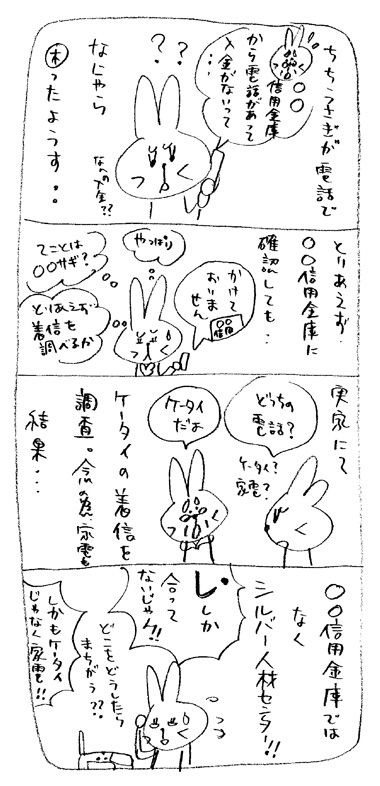 ちちうさぎが電話で
〇〇信用金庫
から電話があって
入金がないって
・・・
？？
なにやら
困ったようす・・
なんの入金？？
とりあえず・
〇〇信用金庫に
確認しても・・
かけて
おりま
せん
〇〇
信用
やっぱり
てことは
〇〇サギ？
とりあえず
着信を
調べるか
実家にて
どっちの
電話？
ケータイ？
家電？
ケータイ
だよ
ケータイの着信を
調査。念の為、家電も
結果・・・
〇〇信用金庫では
なく
シルバー人材センター!!
し しか
合って
ないじゃん!!
どこをどうしたら
まちがう??
しかもケータイ
じゃなく家電!!